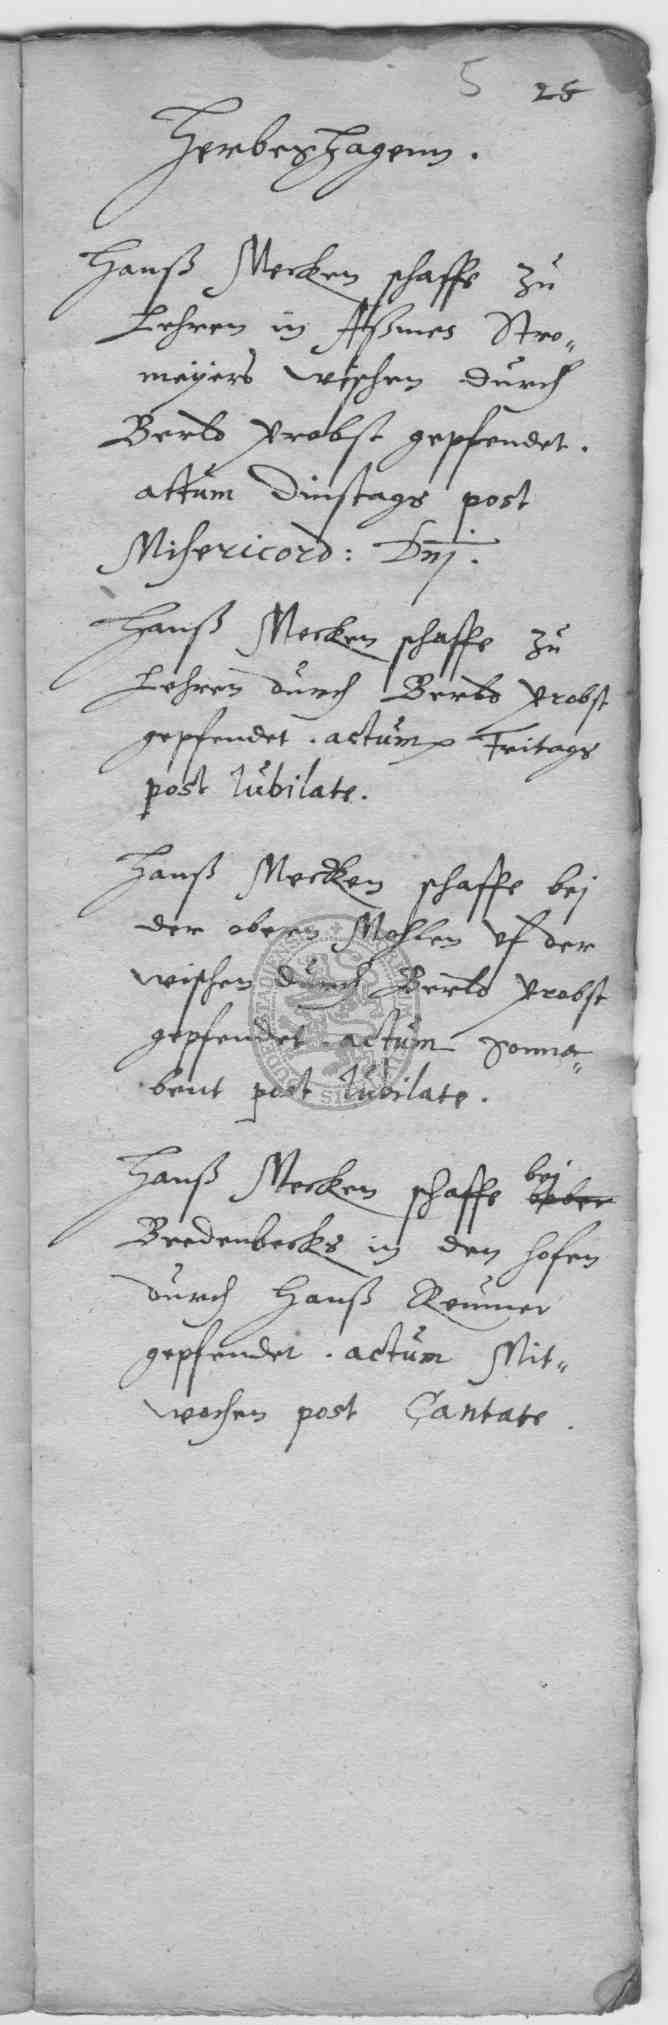 5 25
Herbershagenn.
Hanß Mecken schaffe zu
Lehren in Aßmes Stro-
meyers wischen durch
Berld Probst gepfendet.
actum Dinstags post
Misericord: Dnj.
Hanß Mecken schaffe zu
Lehren durch Berld Probst
gepfendet. actum Fritags
post Jubilate.
Hanß Mecken schaffe bej
der obern Mohlen vf der
wischen durch Berld Probst
gepfendet. actum Sonna-
bent post Jubilate.
Hanß Mecken schaffe bej
Bredenbecks in den hofen
durch Hanß Reumer
gepfendet. actum Mit-
wochen post Cantate.